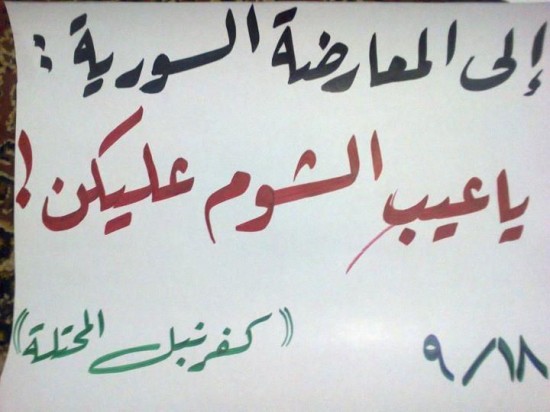 إلى المعارضة السورية :
يا عيب الشوم عليكن !
٩/١٨
(( كفرنبل المحتلة ))